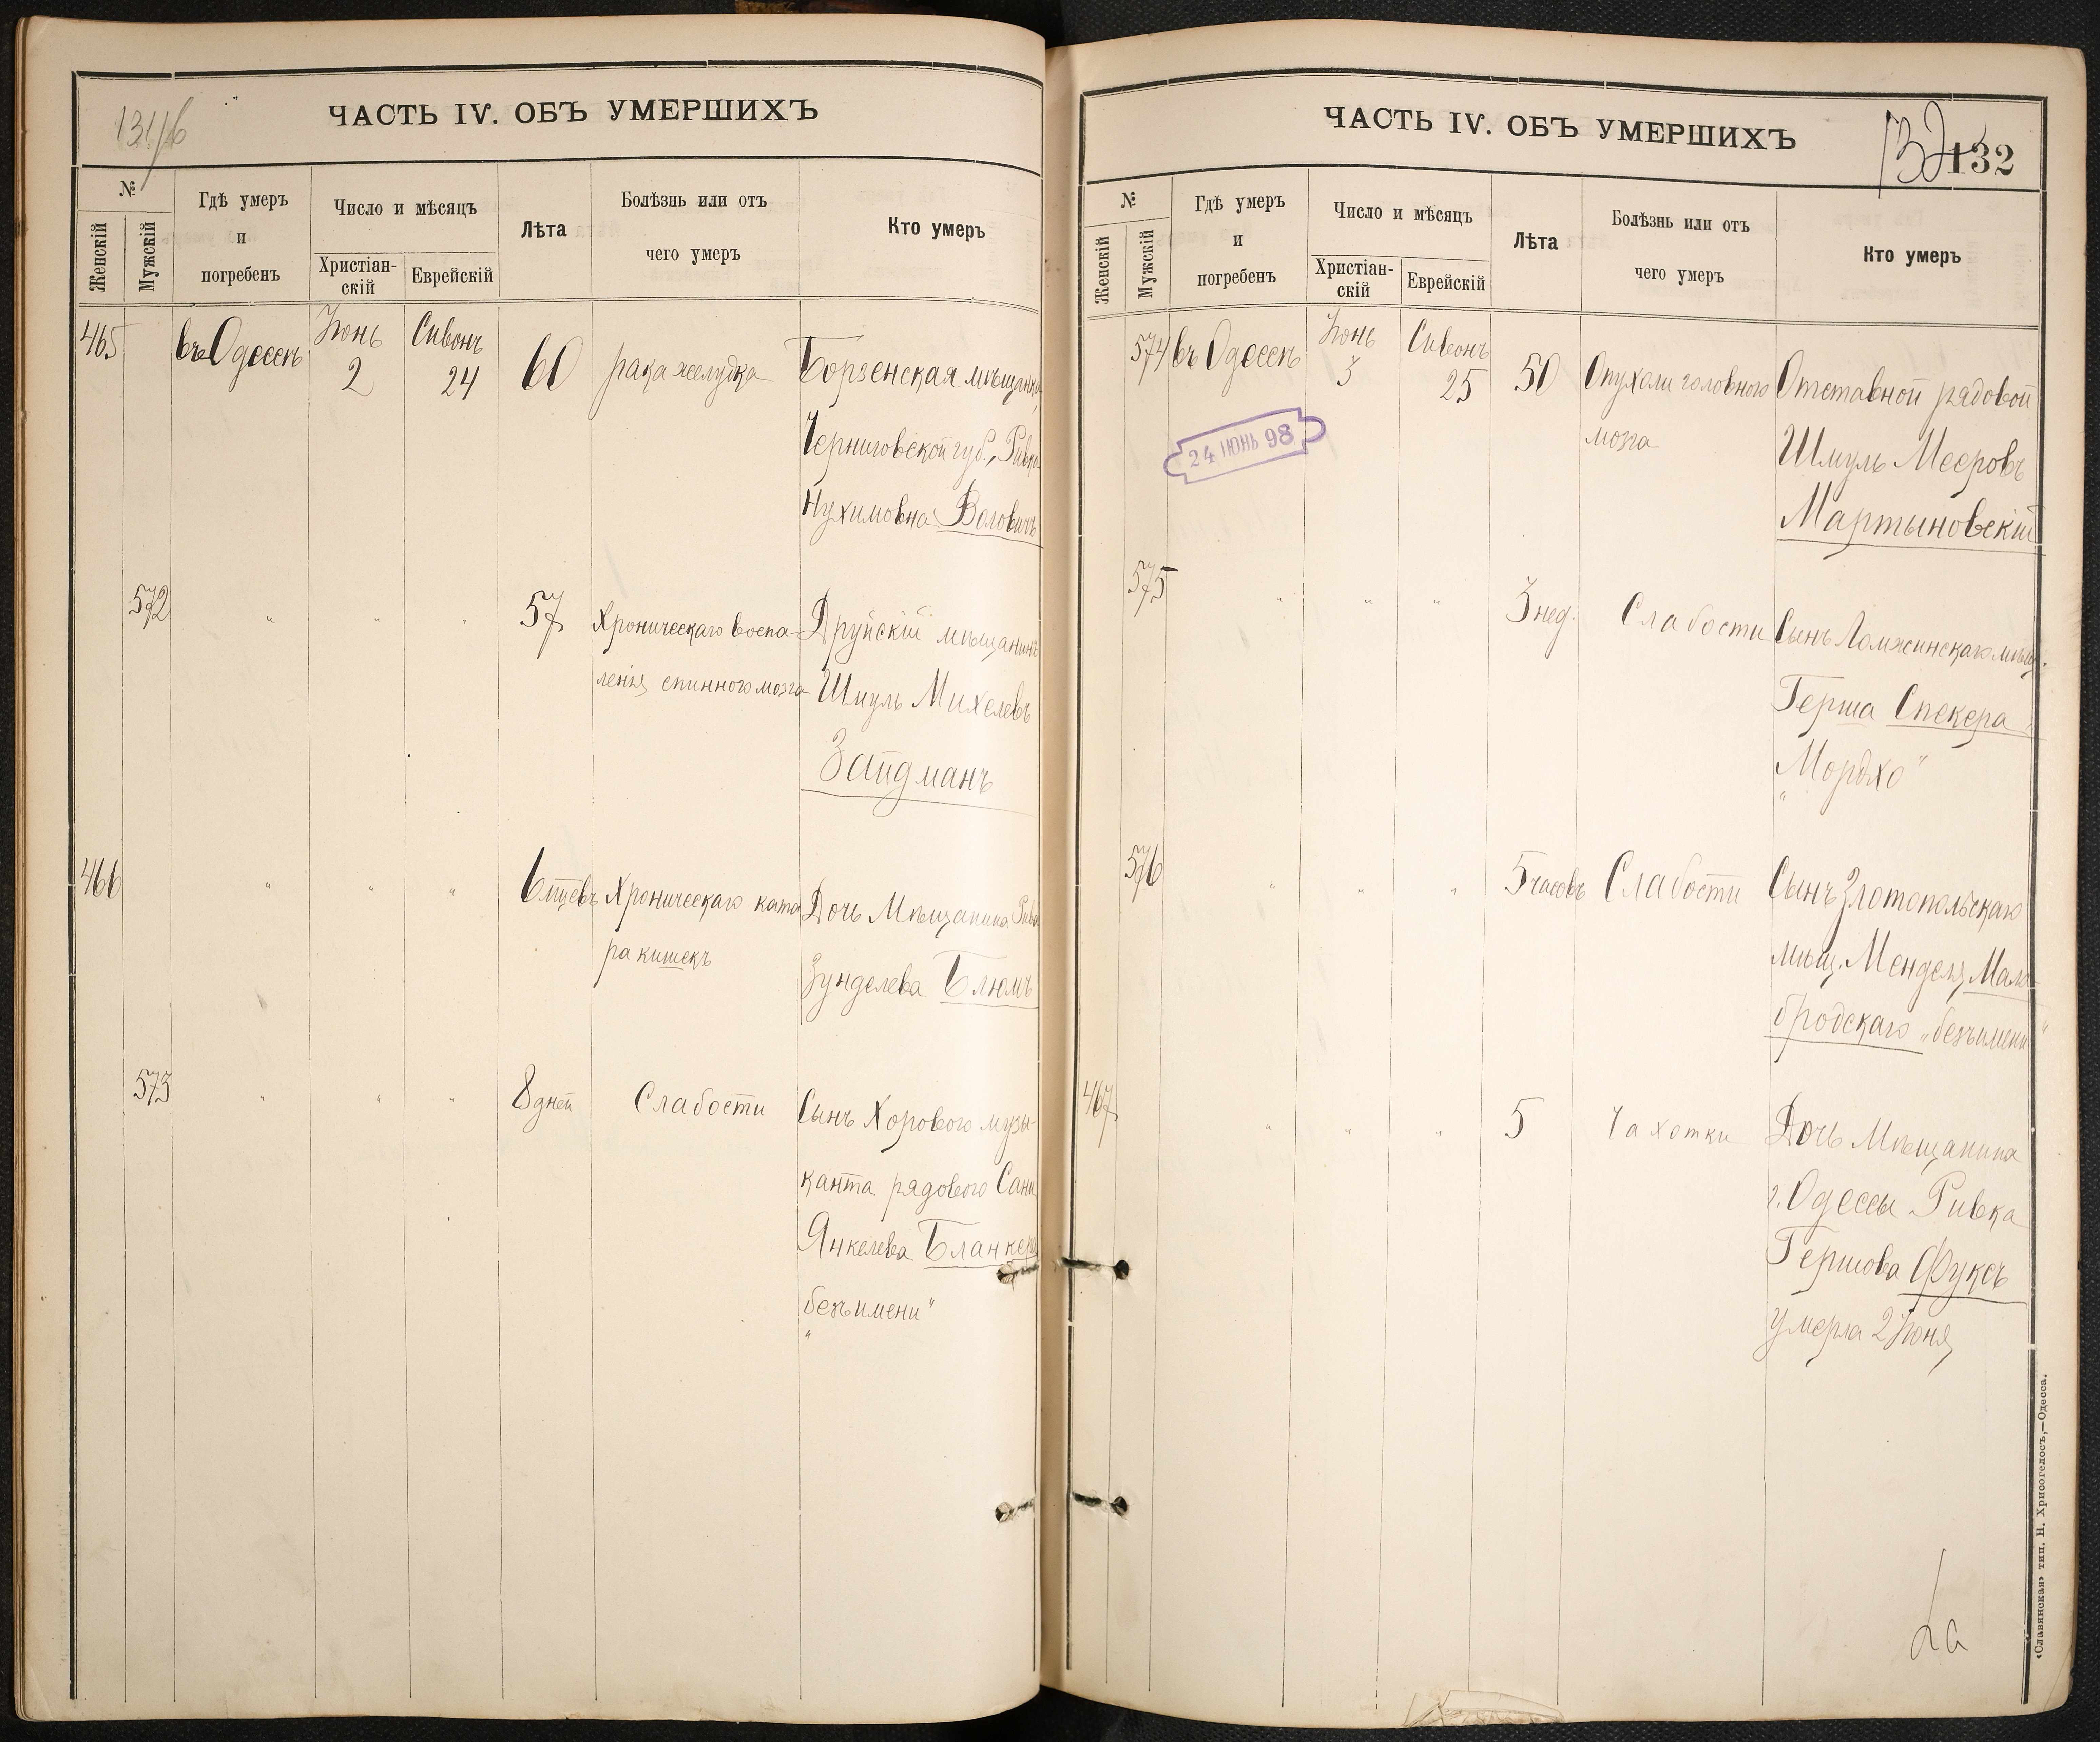 131/б
ЧАСТЬ IV. ОБЪ УМЕРШИХЪ
№
Женскій
Мужскій
Гдѣ умеръ
и
погребенъ
Число и мѣсяцъ
Христіан-
скій
Еврейскій
Лѣта
Болѣзнь или отъ
чего умеръ
Кто умеръ
465 въ Одессѣ Іюнь 2 Сивонъ 24 60 рака желудка Борзенская мѣщанка,
Черниговской губ., Ривка
Нухимовна Воловичъ
572 " " " 57 Хроническаго воспа- Друйскій мѣщанинъ
ленія спинного мозга Шмуль Михелевъ
Зайдманъ
466 " " " 6 мцевъ Хроническаго ката Дочь Мѣщанина
ра кишекъ Зунделева Блюмъ
573 " " " 8 дней Слабости Сынъ Хорового музы-
канта рядового
Янкелева
„безъимени"
ЧАСТЬ IV. ОБЪ УМЕРШИХЪ
132
132
№
Женскій
Мужскій
Гдѣ умеръ
и
погребенъ
Число и мѣсяцъ
Христіан-
скій
Еврейскій
Лѣта
Болѣзнь или отъ
чего умеръ
Кто умеръ
574 въ Одессѣ Іюнь 3 Сивонъ 25 50 Опухоли головного Отставной рядовой
мозга Шмуль Мееровъ
Мартыновскій
24 ІЮНЬ 98
575 " " " 3 нед. Слабости Сынъ Ломжинскаго мѣщ.
Герша Спекера
„Мордко"
576 " " " 5 часовъ Слабости Сынъ Златопольскаго
мѣщ. Менделя Мало-
бродскаго „безъимени"
467 " " " 5 Чахотки Дочь Мѣщанина
г. Одессы Ривка
Гершова Фуксъ
умерла 2 Іюня
«Славянская» тип. Н. Хрисогелосъ,—Одесса.